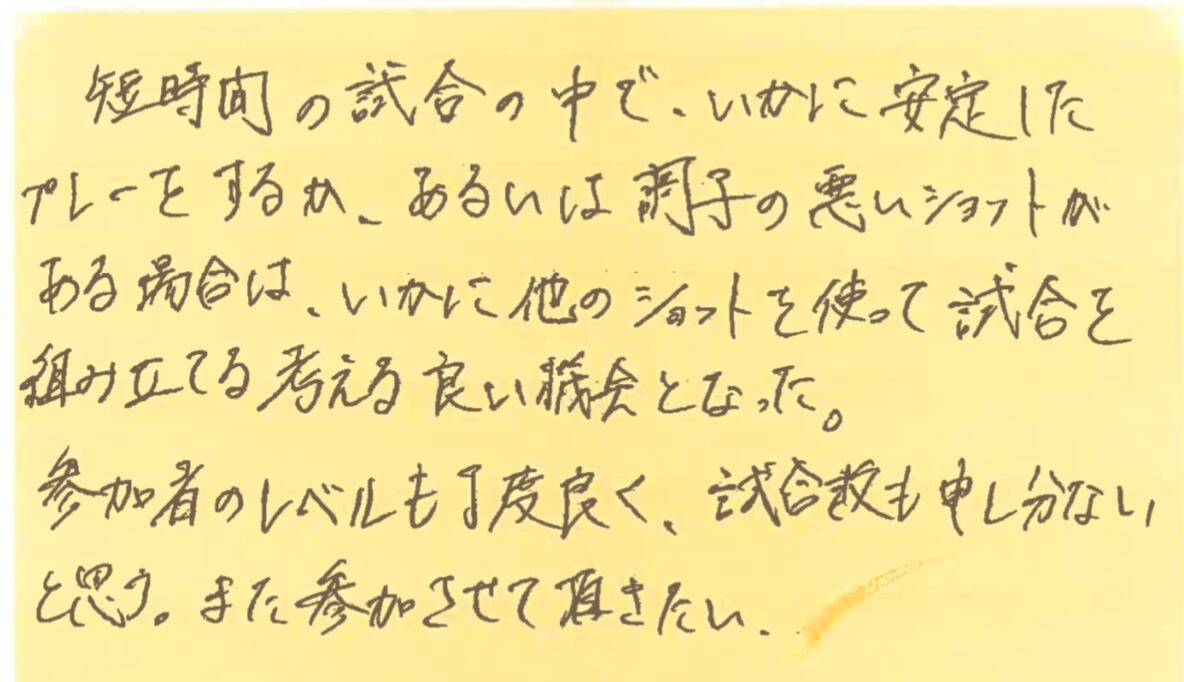 短時間の試合の中で、いかに安定した
プレーをするか、あるいは調子の悪いショットが
ある場合は、いかに他のショットを使って試合を
組み立てる考える良い機会となった。
参加者のレベルも丁度良く、試合数も申し分ない
と思う。また参加させて頂きたい。